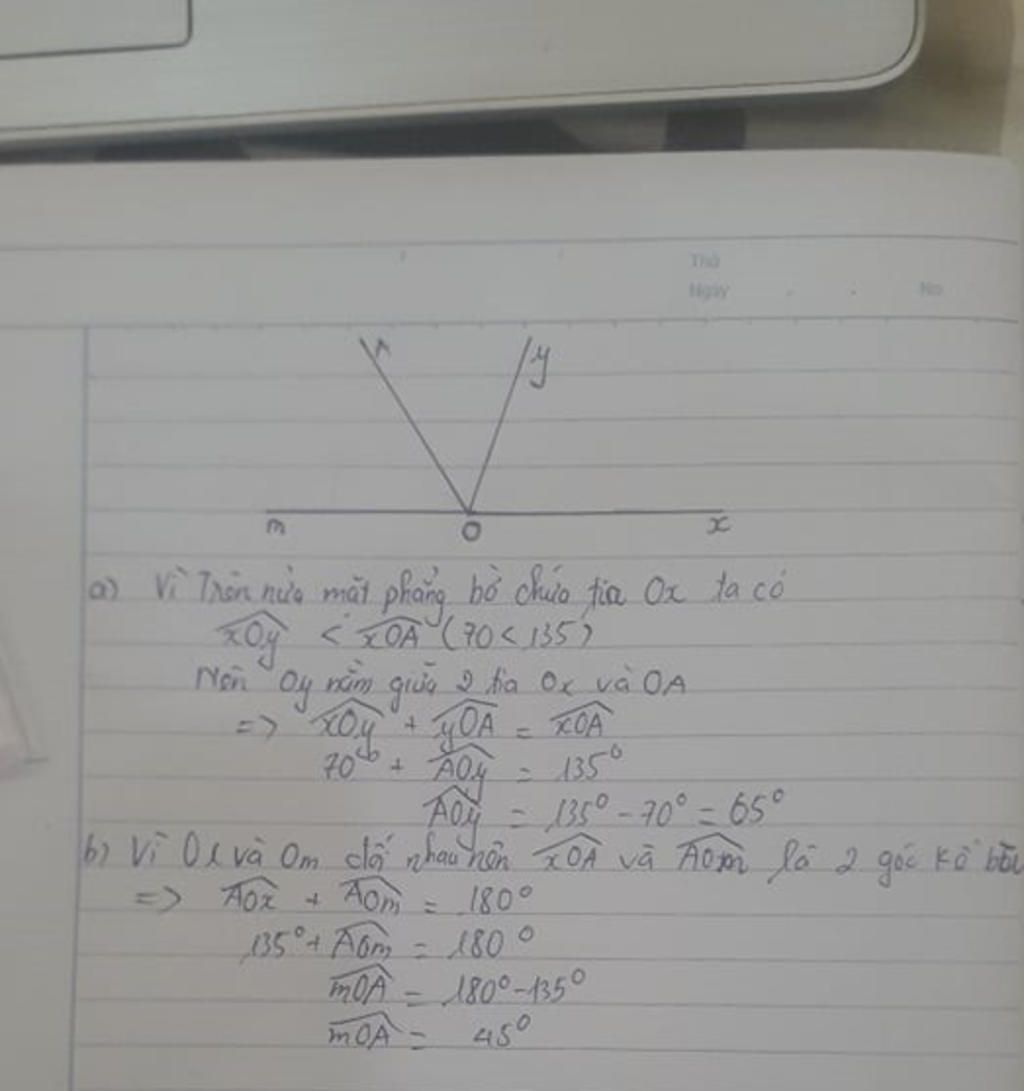 Thứ
Ngày . . No
A y
m O x
a) Vì Trên nửa mặt phẳng bờ chứa tia Ox ta có
xOy < xOA (70 < 135)
Nên Oy nằm giữa 2 tia Ox và OA
=> xOy + yOA = xOA
70° + AOy = 135°
AOy = 135° - 70° = 65°
b) Vì Ox và Om đối nhau nên xOA và AOm là 2 góc kề bù
=> AOx + AOm = 180°
135° + AOm = 180°
mOA = 180° - 135°
mOA = 45°